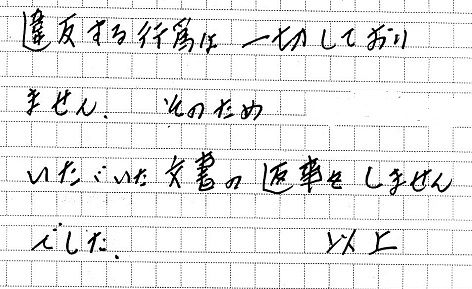 違反する行為は 一切しており
ません. そのため
いただいた文書の返事をしません
でした. 以上